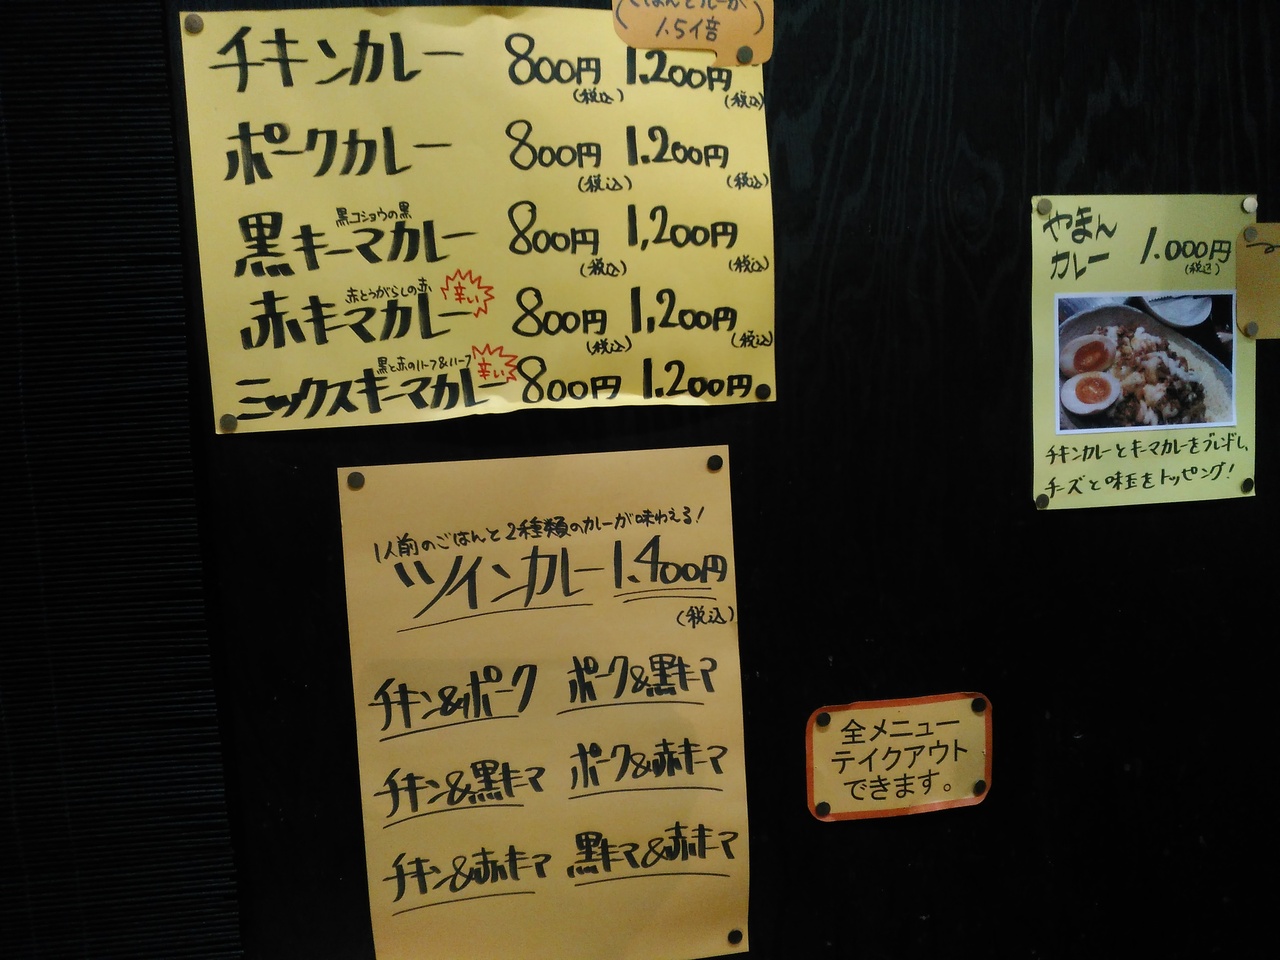 ごはんとルーが
1.5倍
チキンカレー 800円(税込) 1.200円(税込)
ポークカレー 800円(税込) 1.200円(税込)
黒コショウの黒
黒キーマカレー 800円(税込) 1,200円(税込)
赤とうがらしの赤 辛い
赤キーマカレー 800円(税込) 1,200円(税込)
黒と赤のハーフ&ハーフ 辛い
ミックスキーマカレー 800円 1.200円
やまん
カレー 1.000円(税込)
チキンカレーとキーマカレーをブレンドし、
チーズと味玉をトッピング!
1人前のごはんと2種類のカレーが味わえる!
ツインカレー 1.400円
(税込)
チキン&ポーク ポーク&黒キーマ
チキン&黒キーマ ポーク&赤キーマ
チキン&赤キーマ 黒キーマ&赤キーマ
全メニュー
テイクアウト
できます。